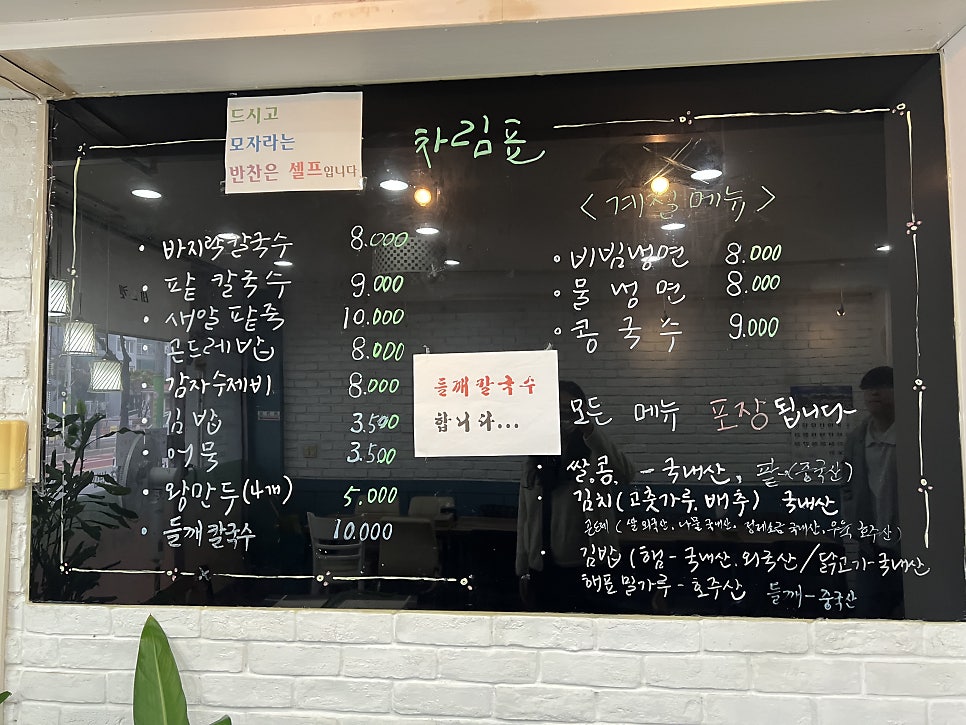 드시고
모자라는
반찬은 셀프입니다
차림표
• 바지락칼국수 8.000
• 팥 칼국수 9.000
• 새알 팥죽 10.000
곤드레밥 8.000
• 감자수제비 8.000
• 김밥 3.500
• 어묵 3.500
• 왕만두(4개) 5.000
• 들깨칼국수 10.000
<계절메뉴>
• 비빔냉면 8.000
• 물냉면 8.000
• 콩국수 9.000
들깨칼국수
합니다...
모든 메뉴 포장됩니다
• 쌀.콩 - 국내산, 팥(중국산)
김치(고춧가루.배추) 국내산
(쌀 외국산, 나물 국내산, 국내산, 호주산)
• 김밥(햄-국내산.외국산/닭고기-국내산
해표밀가루-호주산 들깨-중국산